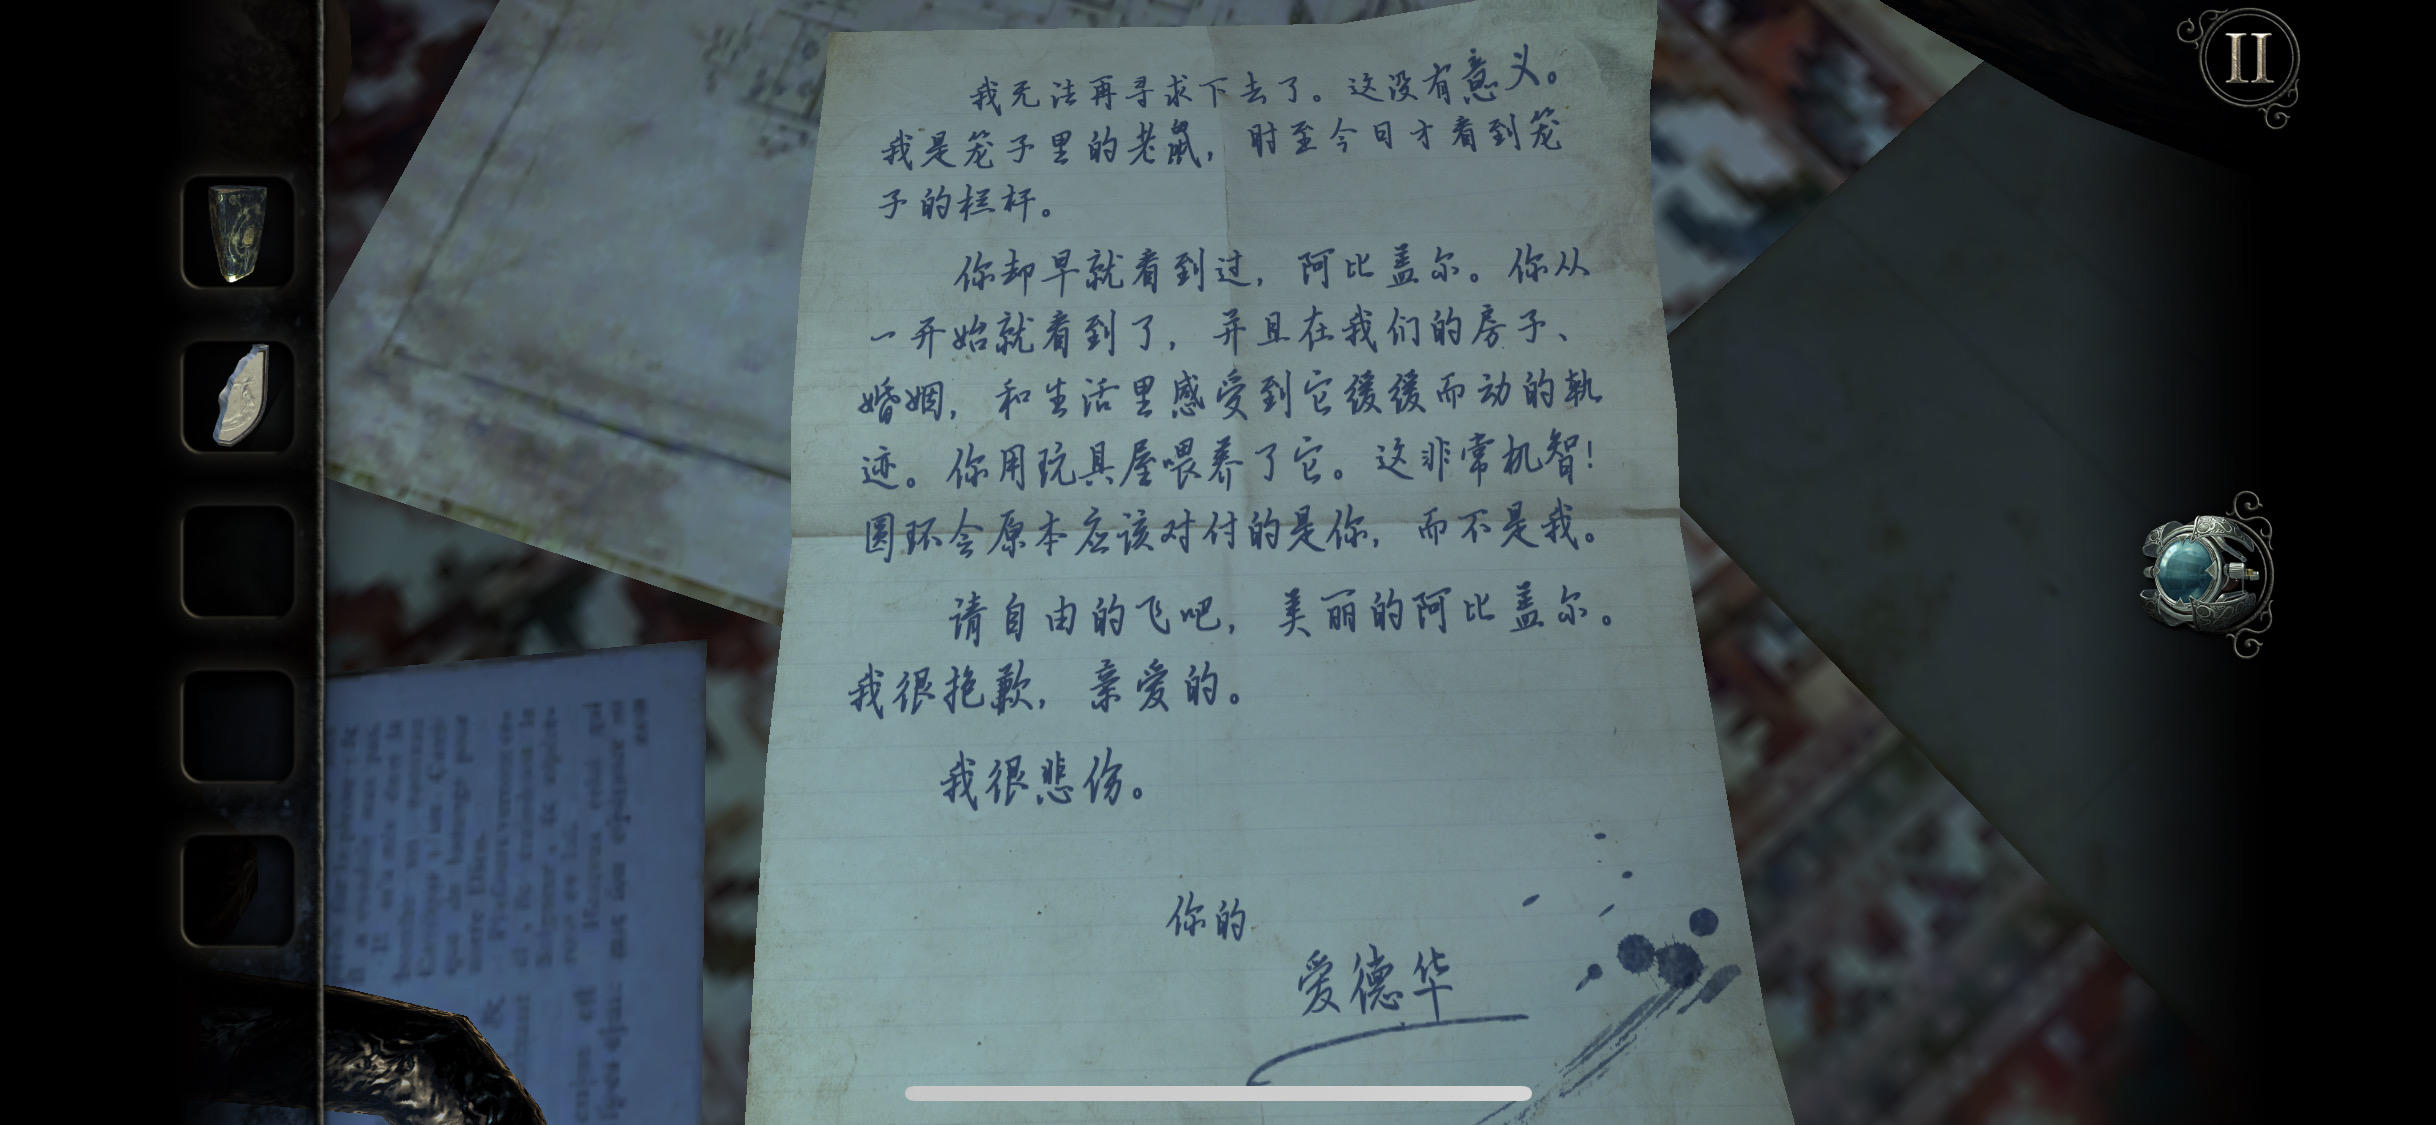 II
我无法再寻求下去了。这没有意义。
我是笼子里的老鼠，时至今日才看到笼
子的栏杆。
你却早就看到过，阿比盖尔。你从
一开始就看到了，并且在我们的房子、
婚姻，和生活里感受到它缓缓而动的轨
迹。你用玩具屋喂养了它。这非常机智！
圆环会原本应该对付的是你，而不是我。
请自由的飞吧，美丽的阿比盖尔。
我很抱歉，亲爱的。
我很悲伤。
你的
爱德华